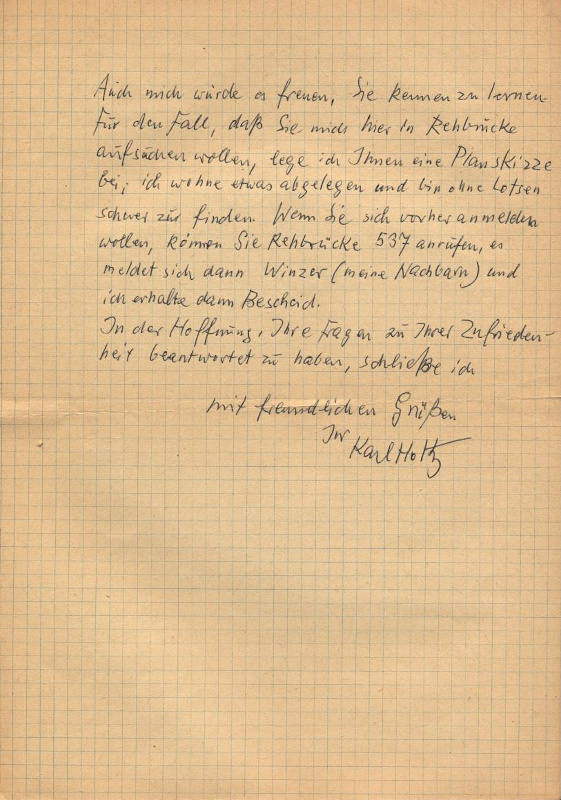 Auch mich würde es freuen, Sie kennen zu lernen
Für den Fall, daß Sie mich hier in Rehbrücke
aufsuchen wollen, lege ich Ihnen eine Planskizze
bei; ich wohne etwas abgelegen und bin ohne Lotsen
schwer zu finden. Wenn Sie sich vorher anmelden
wollen, können Sie Rehbrücke 537 anrufen, es
meldet sich dann Winzer (meine Nachbarn) und
ich erhalte dann Bescheid.
In der Hoffnung, Ihre Fragen zu Ihrer Zufrieden-
heit beantwortet zu haben, schließe ich
mit freundlichen Grüßen
Ihr
Karl Holtz